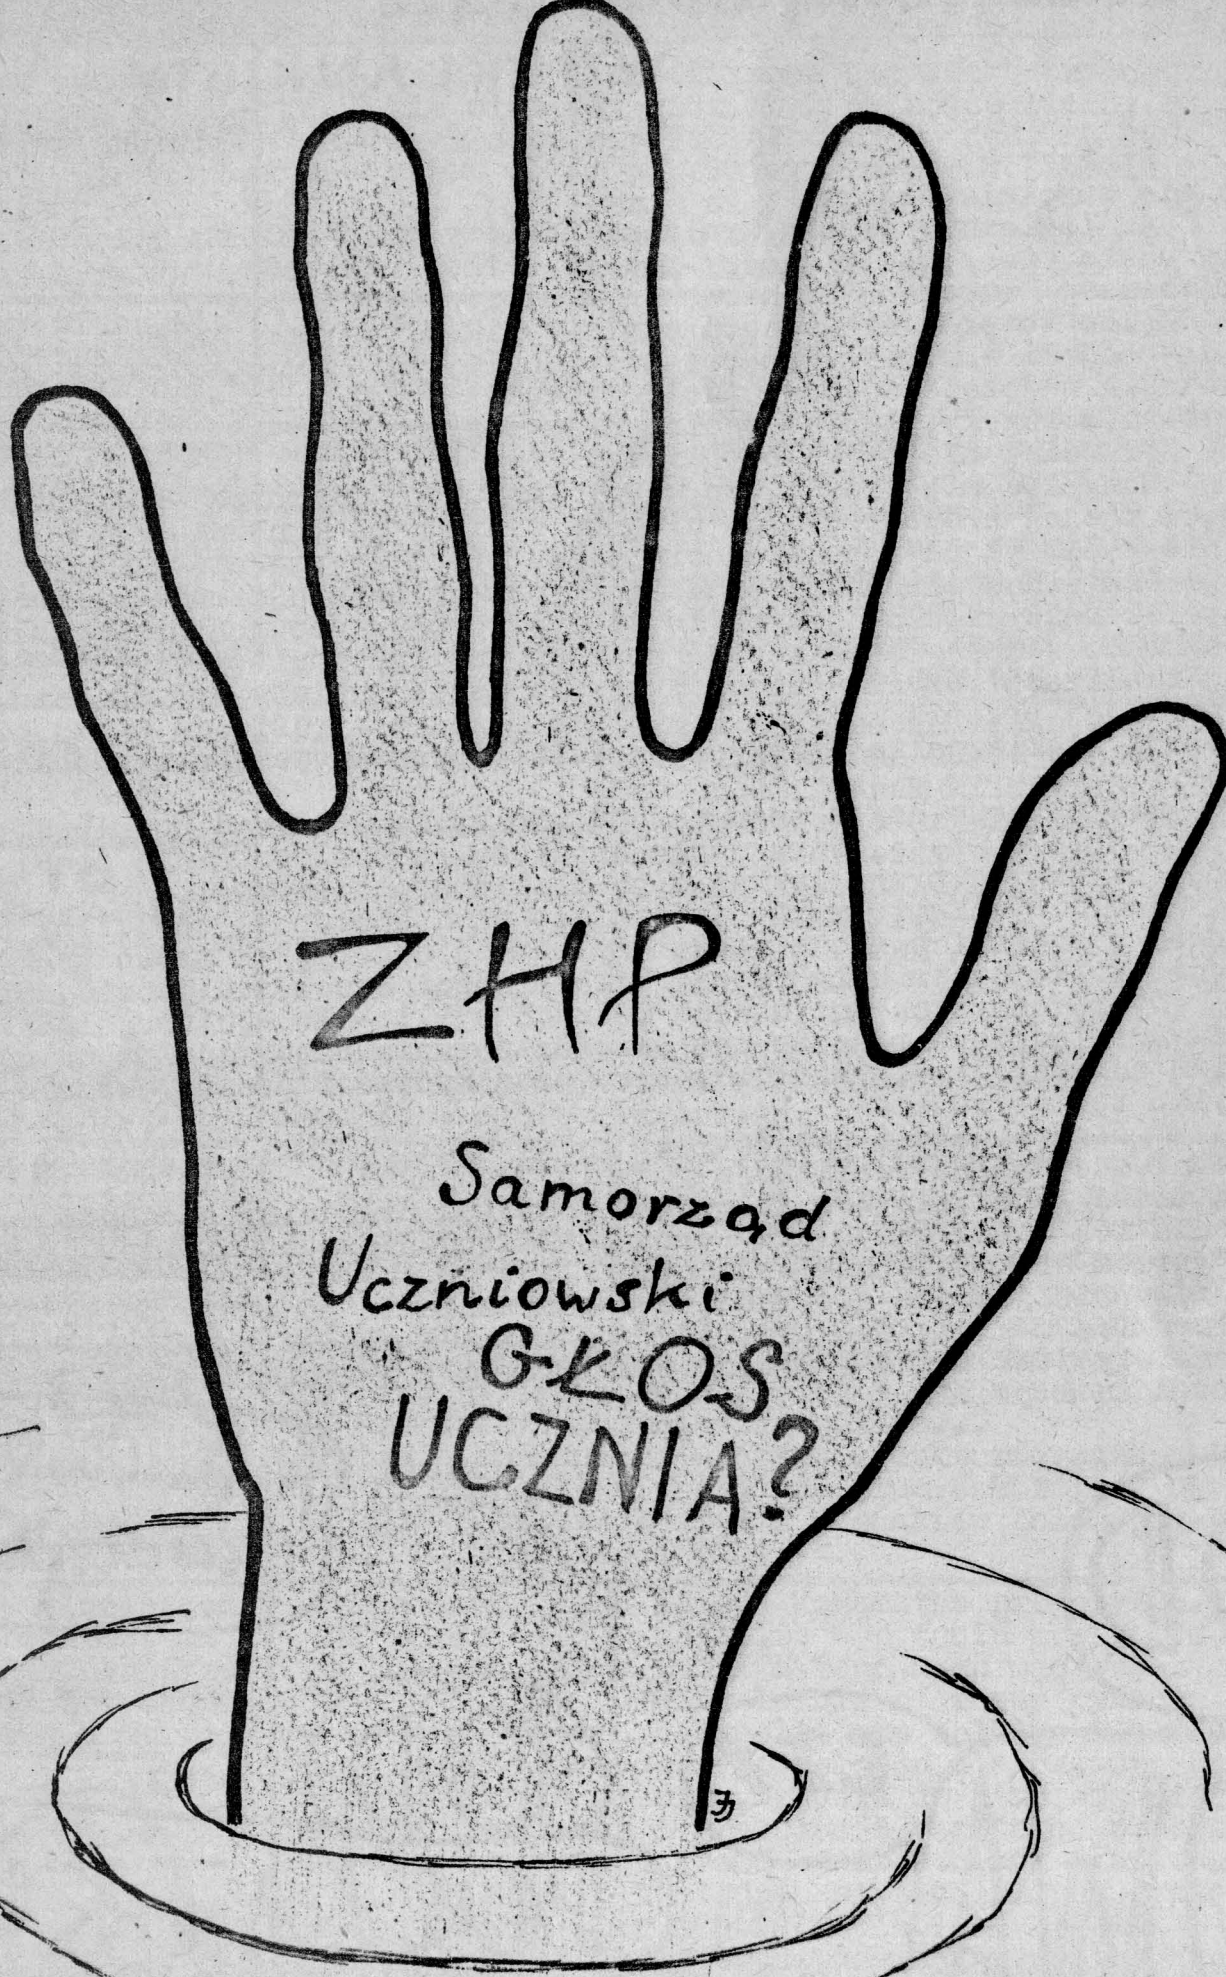 ZHP
Samorząd
Uczniowski
GŁOS
UCZNIA?